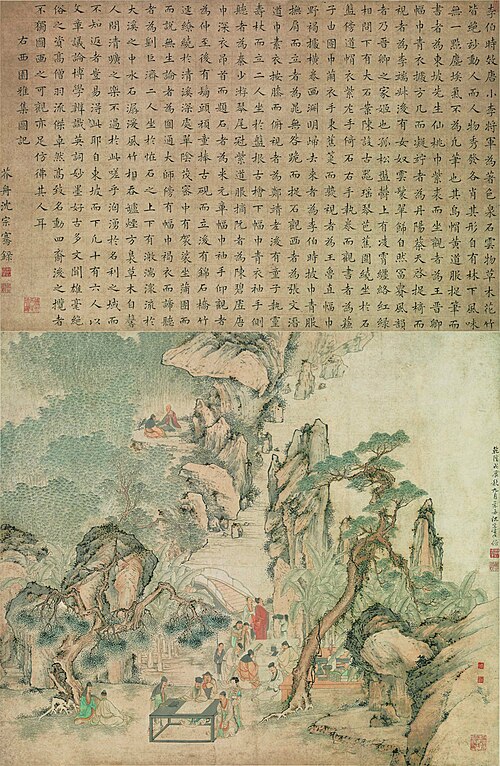 李伯時效唐小李將軍為著色泉石雲物草木花竹
皆絕妙動人而人物秀發各肖其形自有林下風味
無一點塵埃氣不為凡筆也其烏帽黃道服捉筆而
書者為東坡先生仙桃巾紫裘而坐觀者為王晉卿
幅巾青衣據方几而凝竚者為丹陽蔡天啓捉椅而
視者為李端叔後有女奴雲鬟翠飾自然富貴風韻
者乃晉卿之家姬也孤松盤鬱上有凌霄纏絡紅綠
相間下有大石案陳設古器瑤琴芭蕉圍繞坐於石
盤傍道帽衣紫右手倚石左手執卷而觀書者為蘓
子由團巾繭衣手秉蕉箑而熟視者為黃魯直幅巾
野褐據橫卷畫淵明歸去來者為李伯時披巾青服
撫肩而立者為晁無咎跪而捉石觀畫者為張文潛
道巾素衣按膝而俯視者為鄭靖老後有童子執靈
壽杖而立二人坐於盤根古檜下幅巾青衣袖手側
聽者為秦少游琴尾冠紫道服摘阮者為陳碧虛唐
巾深衣昂首而題石者為米元章幅巾袖手仰觀者
為仲至後有頭頑童捧古硯而立後有錦石橋竹
逕繚繞於清溪深處翠陰茂密中有袈裟坐蒲團
而說無生論者為圓通大師傍有幅巾褐衣而諦聽
者為劉巨濟二人坐於怪石之上下有激湍潨流於
大溪之中水石潺湲風竹相吞爐煙方裊草木自馨
人間清曠之樂不過於此嗟乎洶湧於名利之域而
不知返者豈易得此耶自東坡而下凡十有六人以
文章議論博學辨識英詞妙墨好古多聞雄豪絕
俗之資高僧羽流傑卓然高致名動四夷後之攬者
不獨圖畫之可觀亦足仿彿其人耳
右西園雅集圖記
芥舟沈宗騫錄